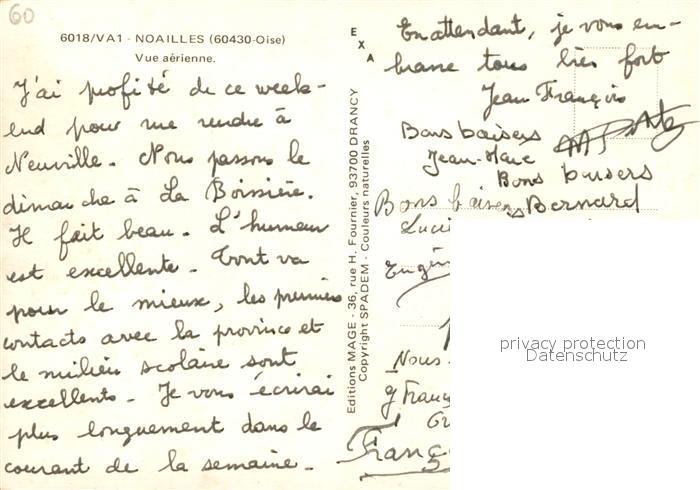 60
6018/VA1 - NOAILLES (60430-Oise)
Vue aérienne.
J'ai profité de ce week-
end pour me rendre à
Neuville. Nous passons le
dimanche à La Boissière.
Il fait beau. L'humeur
est excellente. Tout va
pour le mieux, les premiers
contacts avec la province et
le milieu scolaire sont
excellents. Je vous écrirai
plus longuement dans le
courant de la semaine.
EXA
Editions MAGE - 36, rue H. Fournier, 93700 DRANCY
Copyright SPADEM - Couleurs naturelles
En attendant, je vous em-
brasse tous très fort
Jean François
Bons baisers
Jean-Marc
Bons baisers
Bernard
Bons baisers
Luci
Eugén
Nous
Franç
Franç
privacy protection
Datenschutz